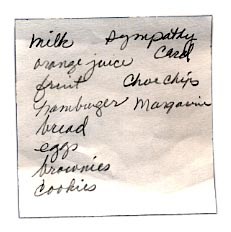 milk
orange juice
fruit
hamburger
bread
eggs
brownies
cookies
Sympathy
Card
Choc chips
Margarine